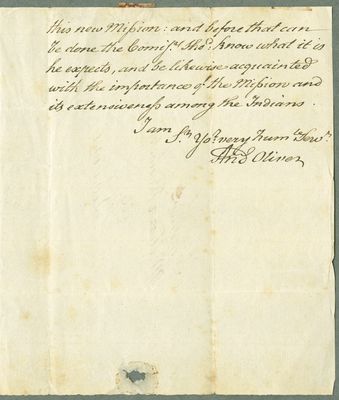 this new Mission: and before that can
be done the Comiss.rs sho.d know what it is
he expects, and be likewise acquainted
with the importance of the Mission and
its extensiveness among the Indians.
I am
S.r Yo.r very hum.le Serv.t
And Oliver